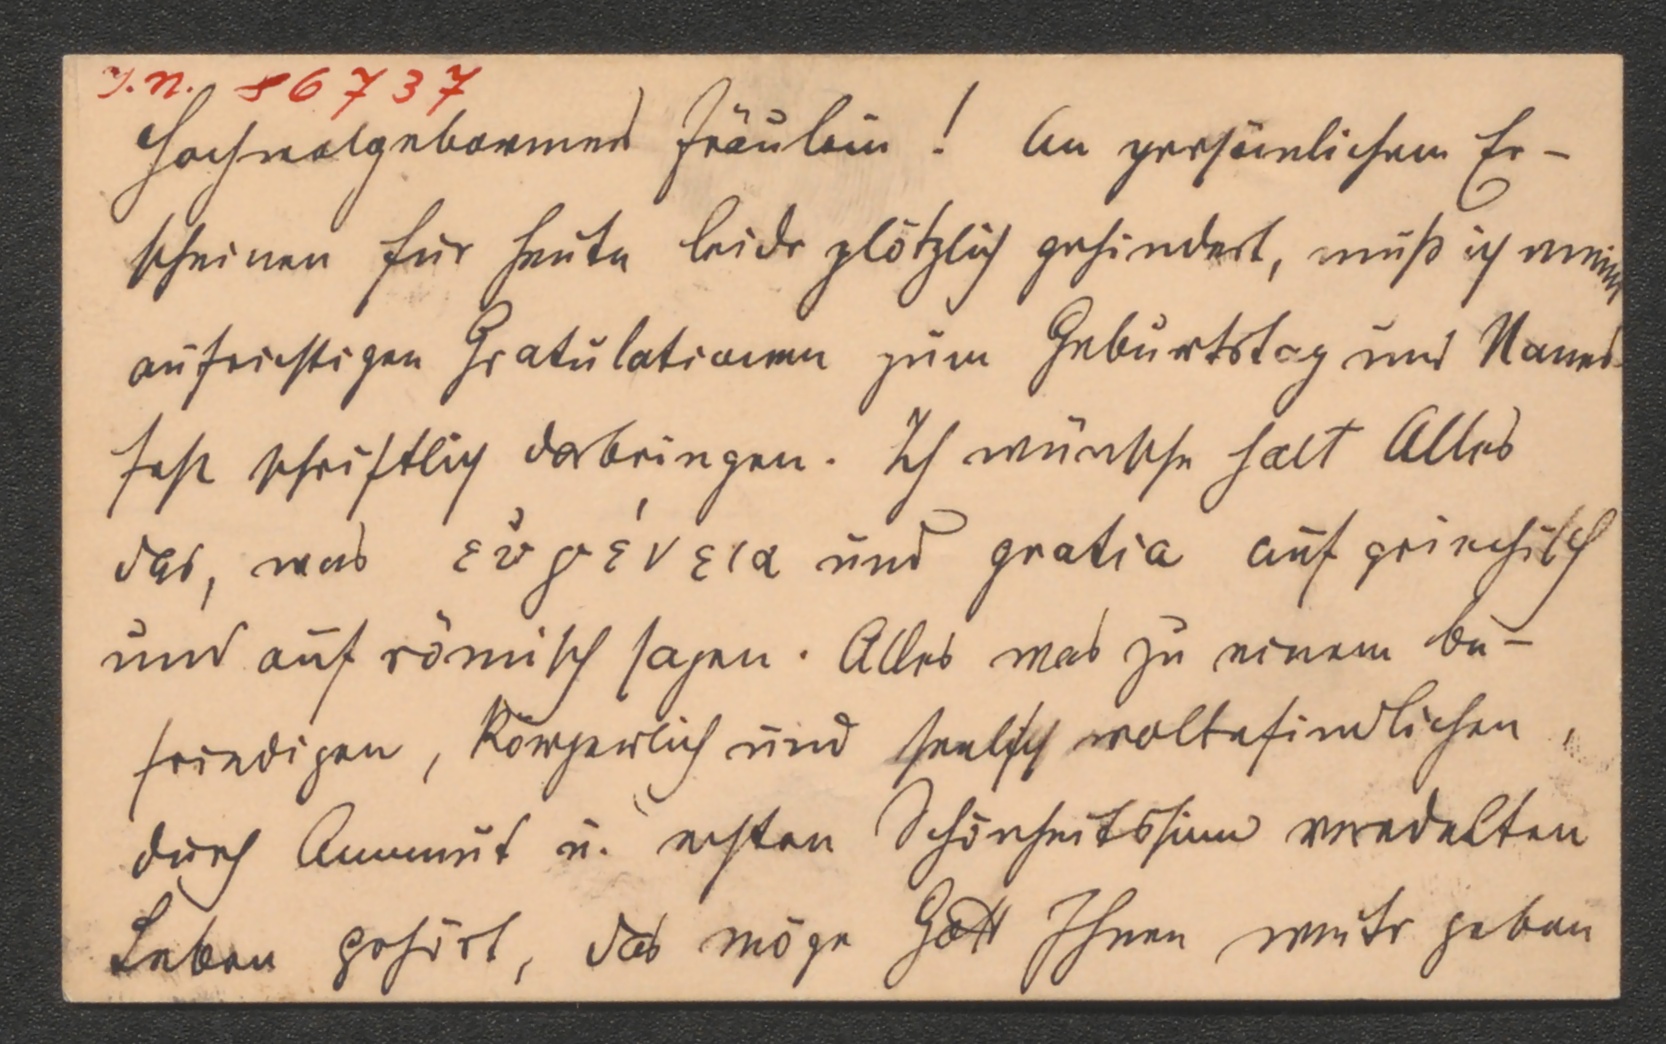 I.N. 86737
Hochwolgebornes Fräulein! Am persönlichen Er-
scheinen für heute leider plötzlich gehindert, muß ich meine
aufrichtigen Gratulationen zum Geburtstag und Namens-
fest schriftlich darbringen. Ich wünsche halt Alles
das, was εὐγένεια und gratia auf griechisch
und auf römisch sagen. Alles was zu einem be-
friedigen, körperlich und seelisch wolbefindlichen,
durch Anmut u. echten Schönheitssinn veredelten
Leben gehört, das möge Gott Ihnen weiter geben